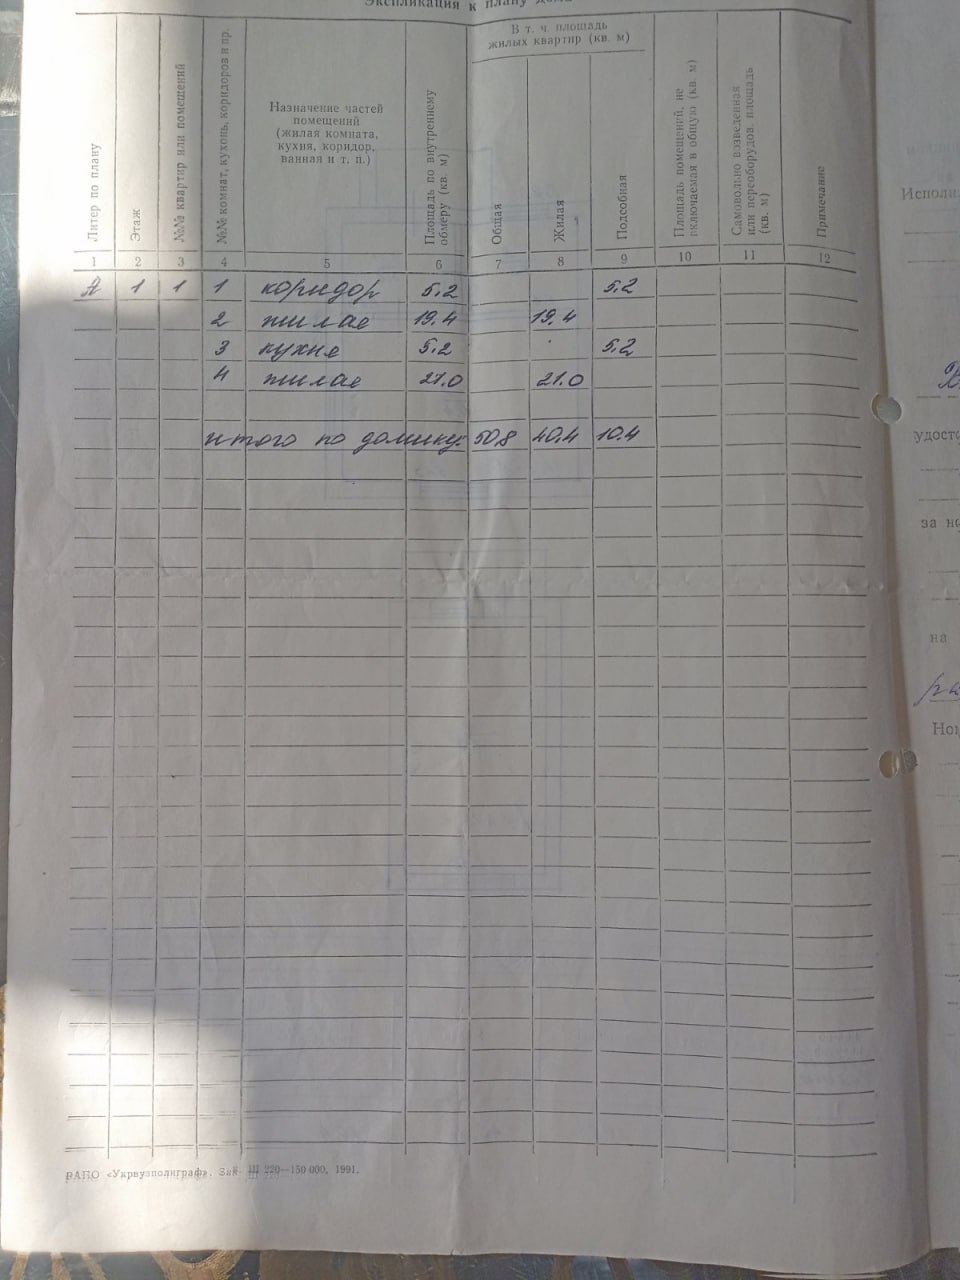 Экспликация к плану дома
Литер по плану
Этаж
№№ квартир или помещений
№№ комнат, кухонь, коридоров и пр.
Назначение частей
помещений
(жилая комната,
кухня, коридор,
ванная и т. п.)
Площадь по внутреннему
обмеру (кв. м)
В т. ч. площадь
жилых квартир (кв. м)
Общая
Жилая
Подсобная
Площадь помещений, не
включаемая в общую (кв. м)
Самовольно возведенная
или переоборудов. площадь
(кв. м)
Примечание
1 2 3 4 5 6 7 8 9 10 11 12
А 1 1 1 коридор 5.2 5.2
2 жилае 19.4 19.4
3 кухне 5.2 5.2
4 жилае 21.0 21.0
итого по домику: 50.8 40.4 10.4
РАПО «Укрвузполиграф». Зак. 220—150 000, 1991.
Исполн
удосто
за
на